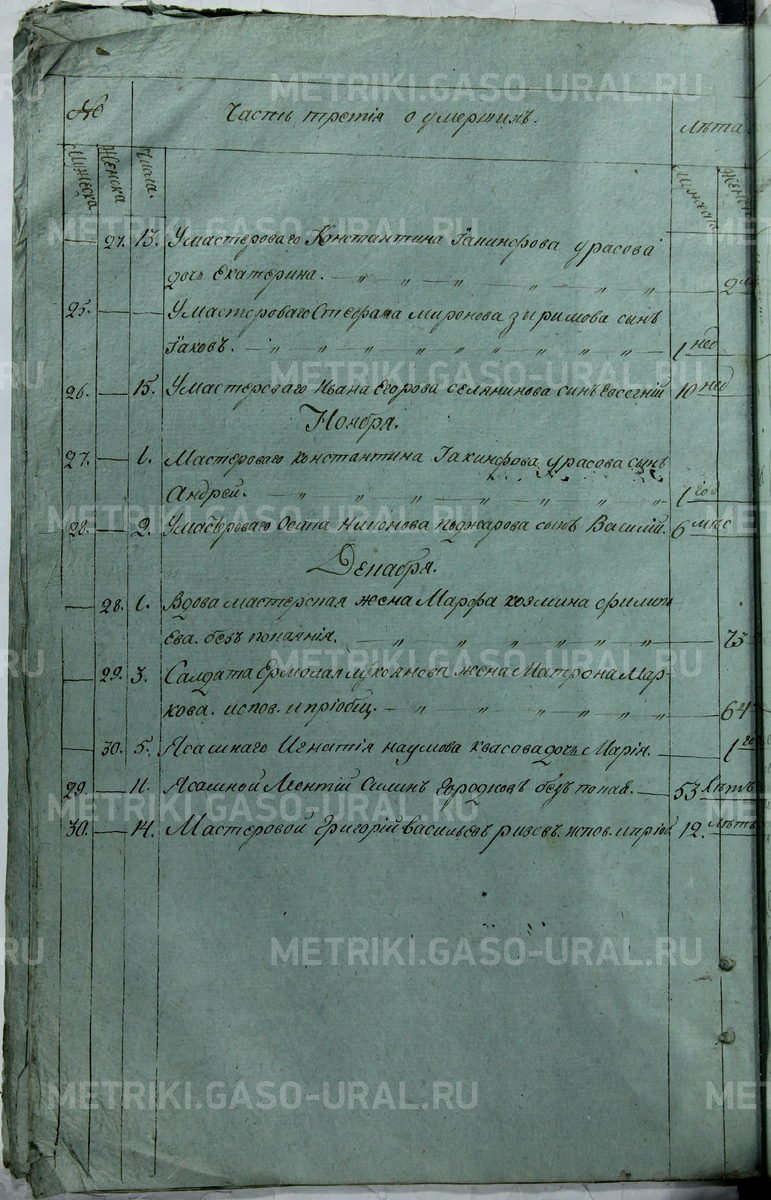 № Часть третія о умершихъ. лѣта
Мужеска Женска Числа. Мужеска Женск
27. 13. У мастероваго Константина Гакинфова урасова
дочь Екатерина. 2
25. У мастероваго Стефана миронова зыримова сынъ
Гаковъ. 1 нед
26. 15. У мастероваго Ивана Егорова селянинова сынъ Евсегній 10 нед
Ноября.
27. 1. Мастероваго константина Гакинфова урасова сынъ
Андрей. 1 год
28. 2. У мастероваго Осипа Никонова поджарова сынъ Василій. 6 мѣс
Декабря.
28. 1. Вдова мастерская жена Марфа козмина филип
ева. безъ покаянія. 73
29. 3. Салдата Ермолая лукоянова жена Матрона Мар
кова. испов. и пріобщ. 64
30. 5. Ясашнаго Игнатія наумова квасова дочь Марія. 1 го
29. 11. Ясашной Леонтій Силинъ Городковъ безъ покая. 53 лѣтъ
30. 14. Мастеровой Григорій васильевъ ризовъ. испов. и пріоб 12. лѣтъ
METRIKI.GASO-URAL.RU